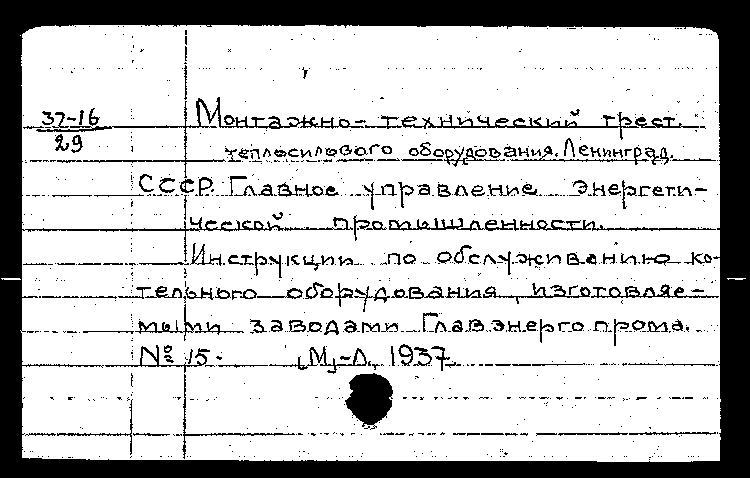 37-16
29
Монтажно-технический трест
теплосилового оборудования. Ленинград.
СССР. Главное управление энергети-
ческой промышленности.
Инструкции по обслуживанию ко-
тельного оборудования, изготовляе-
мыми заводами Главэнергопрома.
№ 15. [М]-Л, 1937.